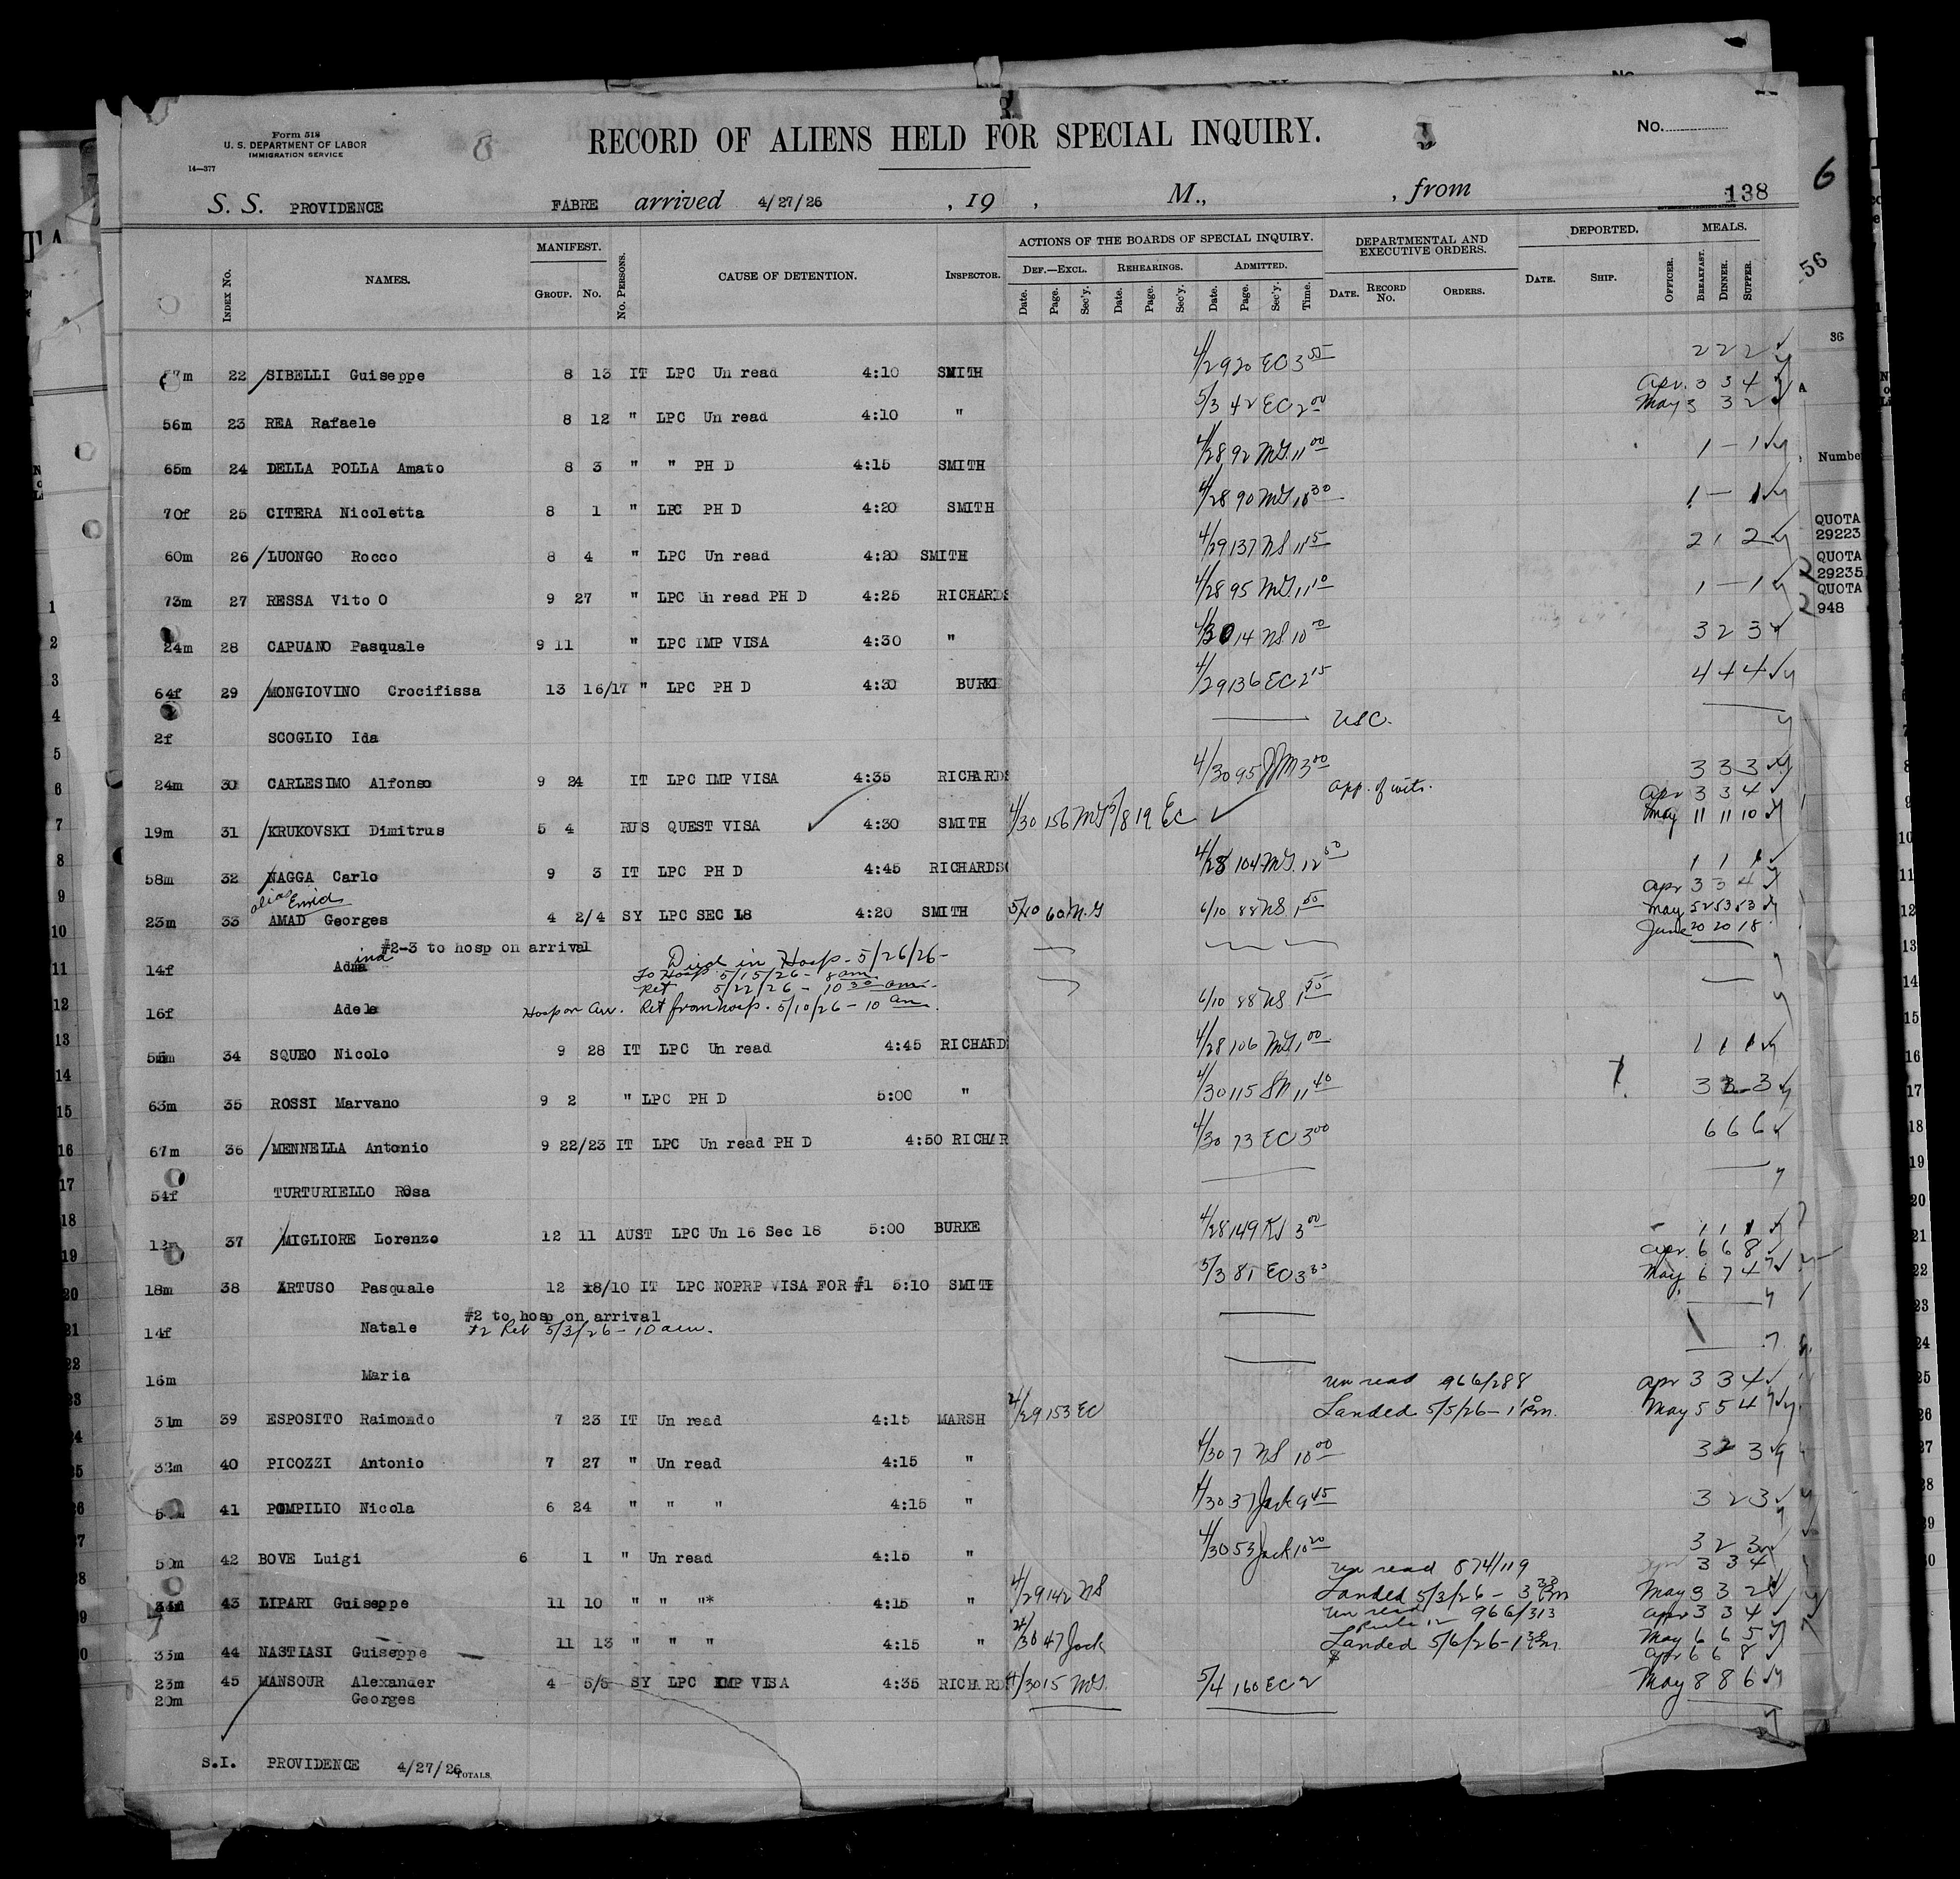 Form 518
U. S. DEPARTMENT OF LABOR
IMMIGRATION SERVICE
14—377
8
RECORD OF ALIENS HELD FOR SPECIAL INQUIRY.
No.
S. S. PROVIDENCE FABRE arrived 4/27/26 , 19 , M., , from 138
6
56
INDEX No. NAMES. MANIFEST. GROUP. No. No. PERSONS. CAUSE OF DETENTION. INSPECTOR. ACTIONS OF THE BOARDS OF SPECIAL INQUIRY. DEF.—EXCL. REHEARINGS. ADMITTED. DEPARTMENTAL AND EXECUTIVE ORDERS. DEPORTED. MEALS.
Date. Page. Sec'y. Date. Page. Sec'y. Date. Page. Sec'y. Time. DATE. RECORD No. ORDERS. DATE. SHIP. OFFICER. BREAKFAST. DINNER. SUPPER.
7m 22 SIBELLI Guiseppe 8 13 IT LPC Un read 4:10 SMITH 4/29 20 EC 3 55 2 2 2
56m 23 REA Rafaele 8 12 " LPC Un read 4:10 " 5/3 42 EC 2 00 Apr. 3 3 4
May 3 3 2
65m 24 DELLA POLLA Amato 8 3 " " PH D 4:15 SMITH 4/28 92 MG 11 00 1 – 1
70f 25 CITERA Nicoletta 8 1 " LPC PH D 4:20 SMITH 4/28 90 MG 10 30 1 – 1
60m 26 LUONGO Rocco 8 4 " LPC Un read 4:20 SMITH 4/29 137 NS 11 15 2 1 2
73m 27 RESSA Vito O 9 27 " LPC Un read PH D 4:25 RICHARDS 4/28 95 MG 11 10 1 – 1
24m 28 CAPUANO Pasquale 9 11 " LPC IMP VISA 4:30 " 4/30 14 NS 10 20 3 2 3
64f 29 MONGIOVINO Crocifissa 13 16/17 " LPC PH D 4:30 BURKE 4/29 136 EC 2 15 4 4 4
2f SCOGLIO Ida USC.
24m 30 CARLESIMO Alfonso 9 24 IT LPC IMP VISA 4:35 RICHARDS 4/30 95 JJM 3 00 3 3 3
19m 31 KRUKOVSKI Dimitrus 5 4 RUS QUEST VISA 4:30 SMITH 4/30 156 MG 5/8 19 EC App. of wits. Apr 3 3 4
May 11 11 10
58m 32 NAGGA Carlo 9 3 IT LPC PH D 4:45 RICHARDSO 4/28 104 MG. 12 50 1 1 1
alias Emid
23m 33 AMAD Georges 4 2/4 SY LPC SEC 18 4:20 SMITH 5/10 60 M.G 6/10 88 NS 1 50 Apr 3 3 4
May 52 53 53
June 20 20 18
#2-3 to hosp on arrival
14f Adma ina Died in Hosp - 5/26/26 -
To Hosp 5/15/26 - 8 am
Ret 5/22/26 - 10 30 am.
16f Adele Hosp on Arr. Ret from hosp. 5/10/26 - 10 am. 6/10 88 NS 1 50
55m 34 SQUEO Nicolo 9 28 IT LPC Un read 4:45 RICHARD 4/28 106 MG 1 00 1 1 1
63m 35 ROSSI Marvano 9 2 " LPC PH D 5:00 " 4/30 115 11 40 3 3
67m 36 MENNELLA Antonio 9 22/23 IT LPC Un read PH D 4:50 RICHAR 4/30 73 EC 3 00 6 6 6
54f TURTURIELLO Rosa
12m 37 MIGLIORE Lorenzo 12 11 AUST LPC Un 16 Sec 18 5:00 BURKE 4/28 149 3 00 1 1 1
18m 38 ARTUSO Pasquale 12 8/10 IT LPC NOPRP VISA FOR #1 5:10 SMITH 5/3 81 EC 3 30 Apr. 6 6 8
May 6 7 4
#2 to hosp on arrival
14f Natale #2 Ret 5/3/26 - 10 am.
16m Maria
31m 39 ESPOSITO Raimondo 7 23 IT Un read 4:15 MARSH 4/29 153 EC un read 966/288 Apr 3 3 4
Landed 5/5/26 - 1 pm. May 5 5 4
32m 40 PICOZZI Antonio 7 27 " Un read 4:15 " 4/30 7 NS 10 00 3 2 3
41 POMPILIO Nicola 6 24 " " " 4:15 " 4/30 37 Jack 9 45 3 2 3
50m 42 BOVE Luigi 6 1 " Un read 4:15 " 4/30 53 Jack 10 20 3 2 3
34m 43 LIPARI Guiseppe 11 10 " " "* 4:15 " 4/29 142 NS un read 874/119 3 3 4
Landed 5/3/26 - 3 pm May 3 3 2
33m 44 NASTIASI Guiseppe 11 13 " " " 4:15 " 4/30 47 Jack un read 966/313 Apr 3 3 4
Landed 5/6/26 - 1 pm May 6 6 5
23m 45 MANSOUR Alexander 4 5/6 SY LPC IMP VISA 4:35 RICHARDS 4/30 15 MG. 5/4 160 EC 2 Apr 6 6 8
20m Georges May 8 8 6
S.I. PROVIDENCE 4/27/26 TOTALS.
36
Number
QUOTA
29223
QUOTA
29235
QUOTA
948